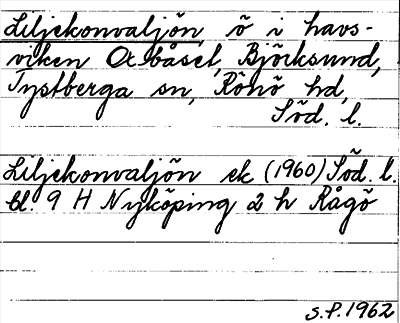 Liljekonvaljön, ö i havs-
viken Arbåsel, Björksund,
Tystberga sn, Rönö hd,
Söd. l.
Liljekonvaljön ek (1960) Söd. l.
bl. 9 H Nyköping 2 h Rågö
S.P. 1962